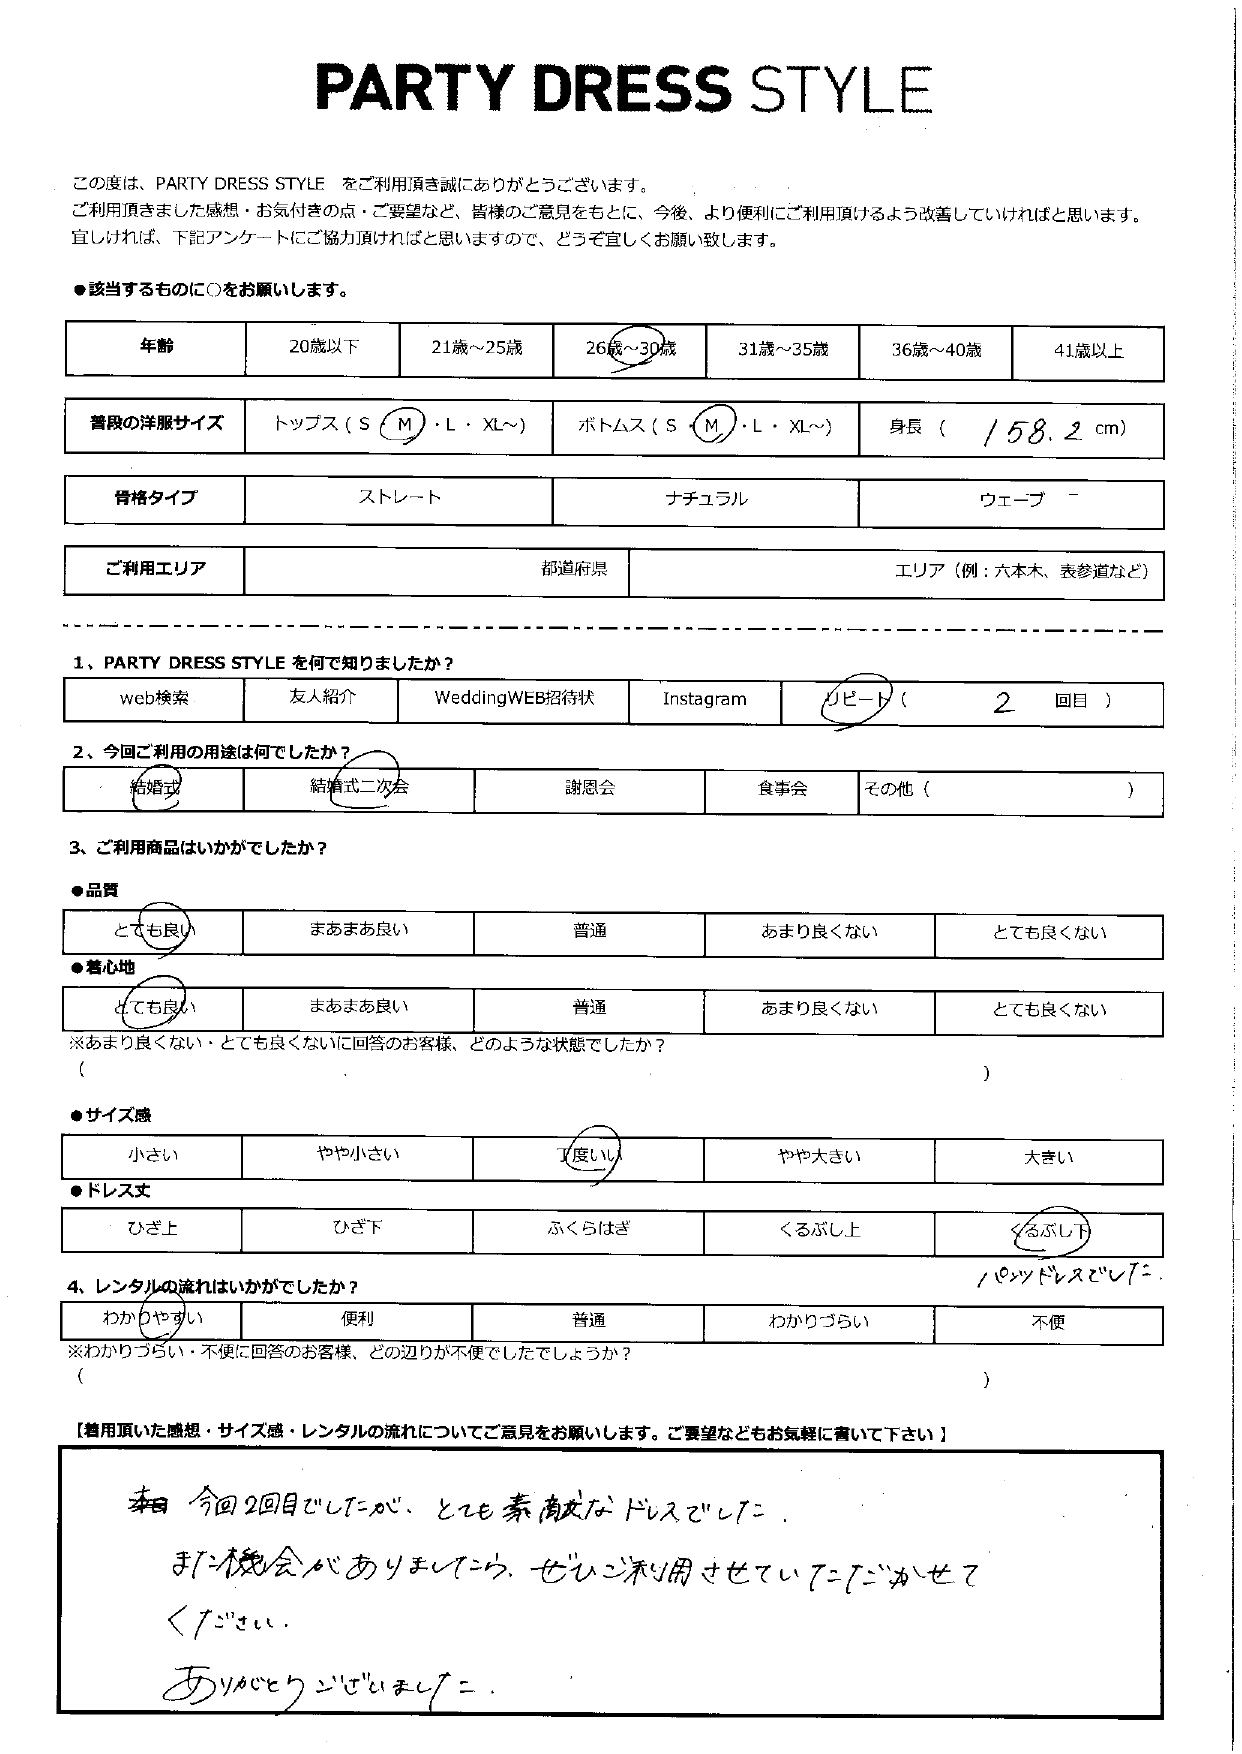 PARTY DRESS STYLE
この度は、PARTY DRESS STYLE をご利用頂き誠にありがとうございます。
ご利用頂きました感想・お気付きの点・ご要望など、皆様のご意見をもとに、今後、より便利にご利用頂けるよう改善していければと思います。
宜しければ、下記アンケートにご協力頂ければと思いますので、どうぞ宜しくお願い致します。
●該当するものに○をお願いします。
年齢 20歳以下 21歳～25歳 26歳～30歳 31歳～35歳 36歳～40歳 41歳以上
普段の洋服サイズ トップス ( S ・ M ・ L ・ XL～) ボトムス ( S ・ M ・ L ・ XL～) 身長 ( 158.2 cm)
骨格タイプ ストレート ナチュラル ウェーブ
ご利用エリア 都道府県 エリア（例：六本木、表参道など）
1、PARTY DRESS STYLE を何で知りましたか？
web検索 友人紹介 WeddingWEB招待状 Instagram リピート ( 2 回目 )
2、今回ご利用の用途は何でしたか？
結婚式 結婚式二次会 謝恩会 食事会 その他 ( )
3、ご利用商品はいかがでしたか？
●品質
とても良い まあまあ良い 普通 あまり良くない とても良くない
●着心地
とても良い まあまあ良い 普通 あまり良くない とても良くない
※あまり良くない・とても良くないに回答のお客様、どのような状態でしたか？
( )
●サイズ感
小さい やや小さい 丁度いい やや大きい 大きい
●ドレス丈
ひざ上 ひざ下 ふくらはぎ くるぶし上 くるぶし下
パンツドレスでした.
4、レンタルの流れはいかがでしたか？
わかりやすい 便利 普通 わかりづらい 不便
※わかりづらい・不便に回答のお客様、どの辺りが不便でしたでしょうか？
( )
【着用頂いた感想・サイズ感・レンタルの流れについてご意見をお願いします。ご要望などもお気軽に書いて下さい 】
今回2回目でしたが、とても素敵なドレスでした.
また機会がありましたら、ぜひご利用させていただかせて
ください.
ありがとうございました.